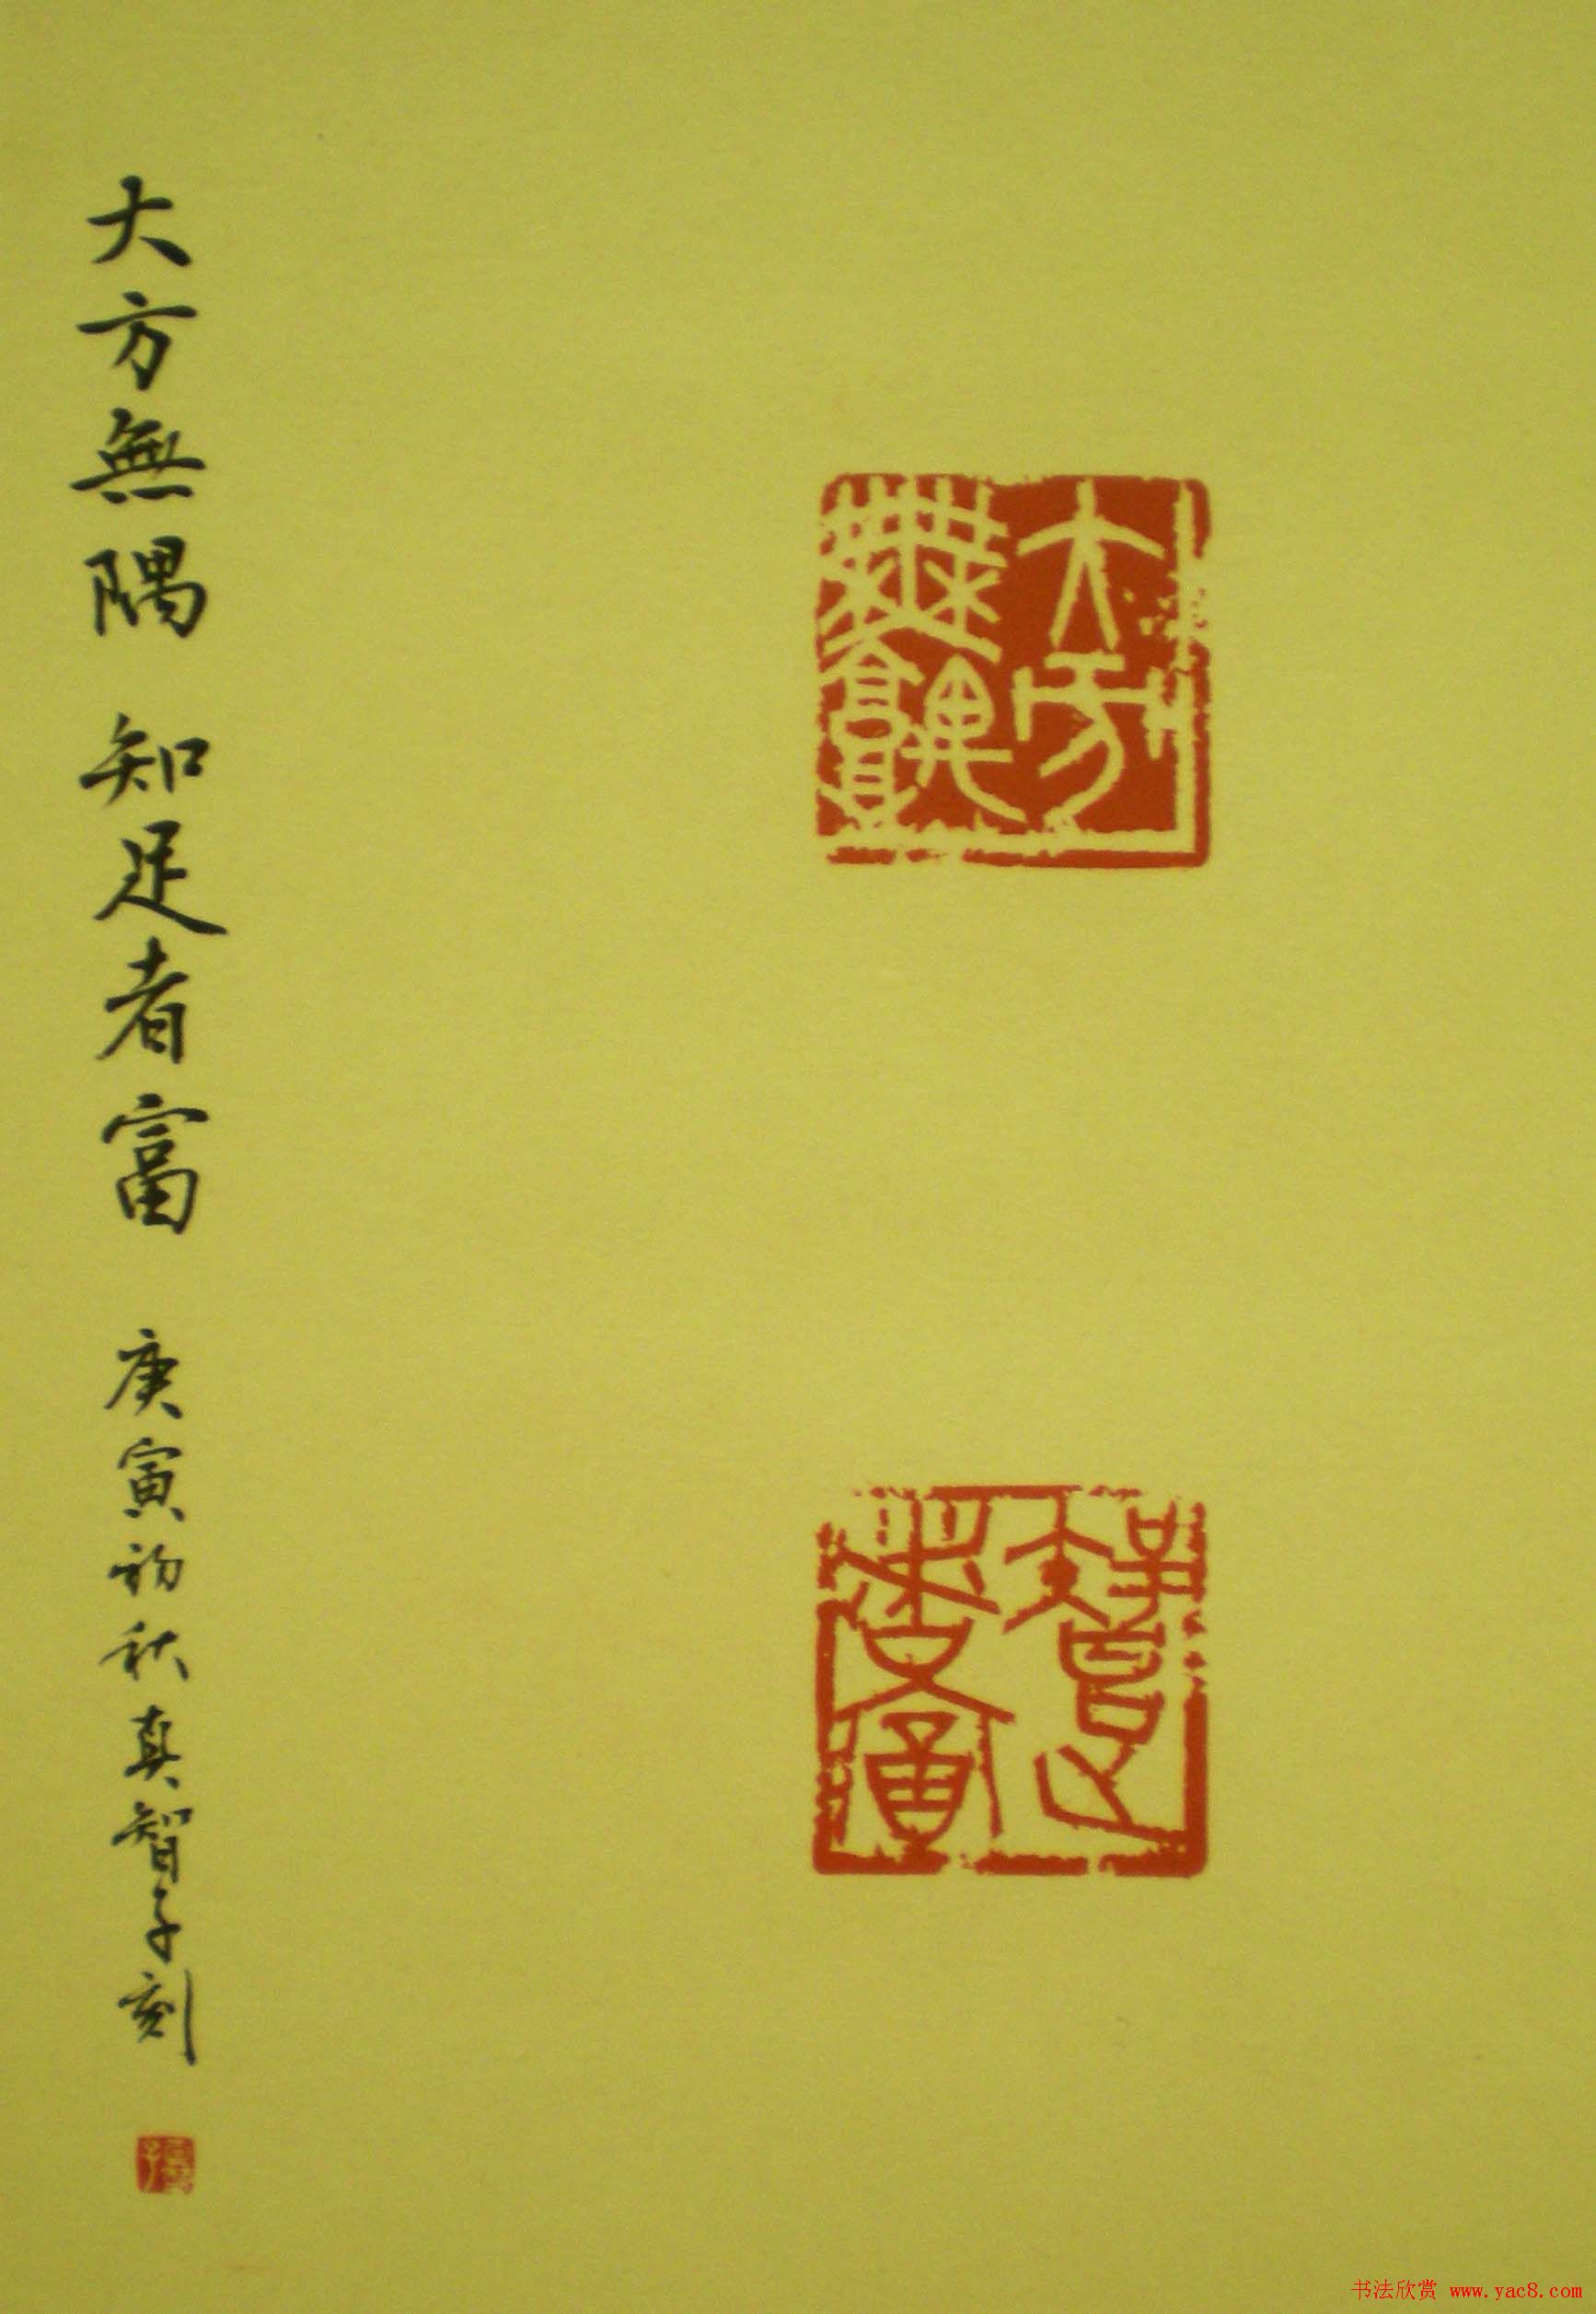 大方無隅
知足者富
大方無隅 知足者富 庚寅初秋真智子刻
书法欣赏 www.yac8.com